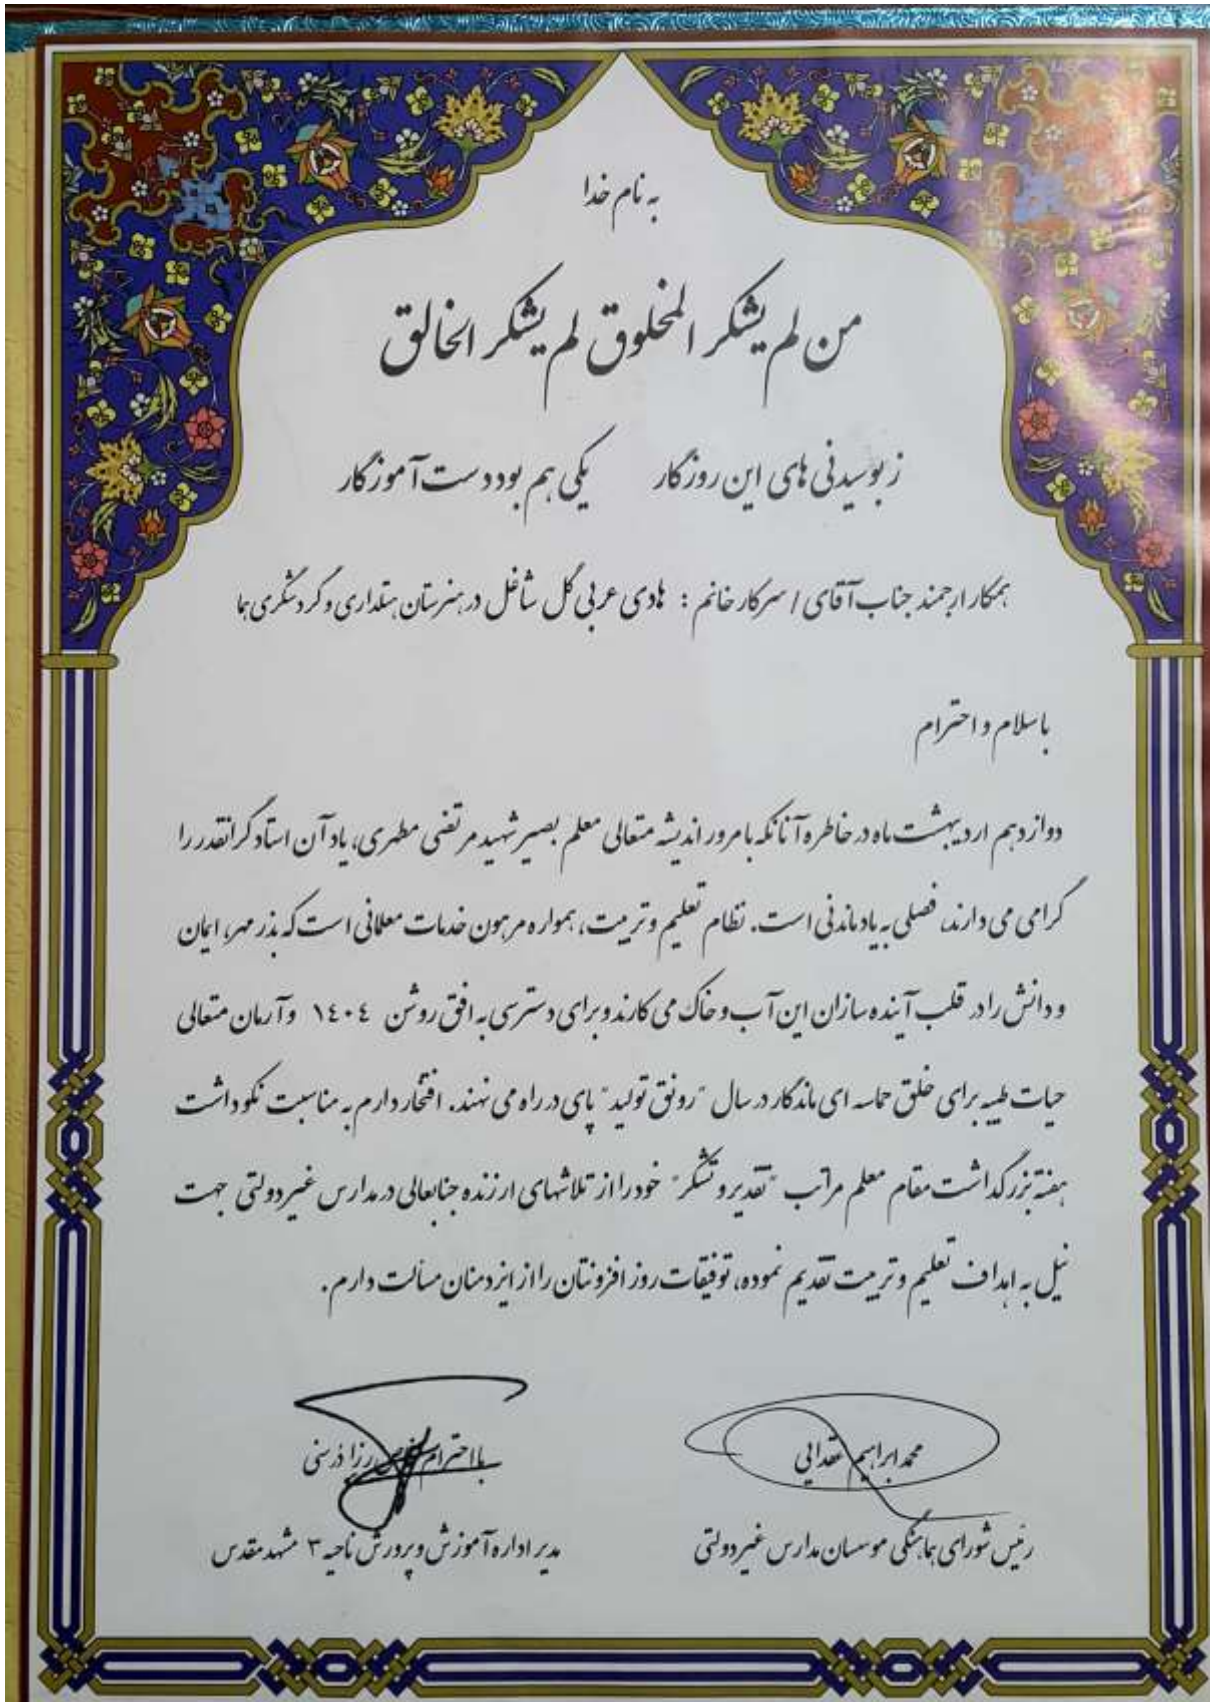 به نام خدا
من لم یشکر المخلوق لم یشکر الخالق
ز بوسیدنی های این روزگار یکی هم بود دست آموزگار
همکار ارجمند جناب آقای / سرکار خانم : هادی عربی گل شاغل در هنرستان هتلداری و گردشگری هما
باسلام و احترام
دوازدهم اردیبهشت ماه در خاطره آنانکه با مرور اندیشه متعالی معلم بصیر شهید مرتضی مطهری، یاد آن استاد گرانقدر را
گرامی می دارند، فصلی به یاد ماندنی است. نظام تعلیم و تربیت، همواره مرهون خدمات معلمانی است که بذر مهر، ایمان
و دانش را در قلب آینده سازان این آب و خاک می کارند و برای دسترسی به افق روشن ۱۴۰۴ و آرمان متعالی
حیات طیبه برای خلق حماسه ای ماندگار در سال "رونق تولید" پای در راه می نهند. افتخار دارم به مناسبت نکوداشت
هفته بزرگداشت مقام معلم مراتب "تقدیر و تشکر" خود را از تلاشهای ارزنده جنابعالی در مدارس غیر دولتی جهت
نیل به اهداف تعلیم و تربیت تقدیم نموده، توفیقات روز افزونتان را از ایزد منان مسألت دارم.
محمد ابراهیم عقدائی
رئیس شورای هماهنگی موسسان مدارس غیر دولتی
با احترام
مدیر اداره آموزش و پرورش ناحیه ۳ مشهد مقدس